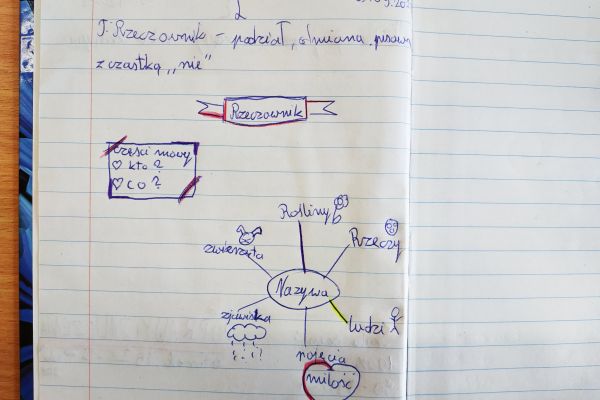 2
T: Rzeczownik – podział, odmiana, pisown
z cząstką „nie”
Rzeczownik
części mowy
♡ kto?
♡ co?
Rośliny
Rzeczy
zwierzęta
Nazywa
zjawiska
ludzi
pojęcia
miłość